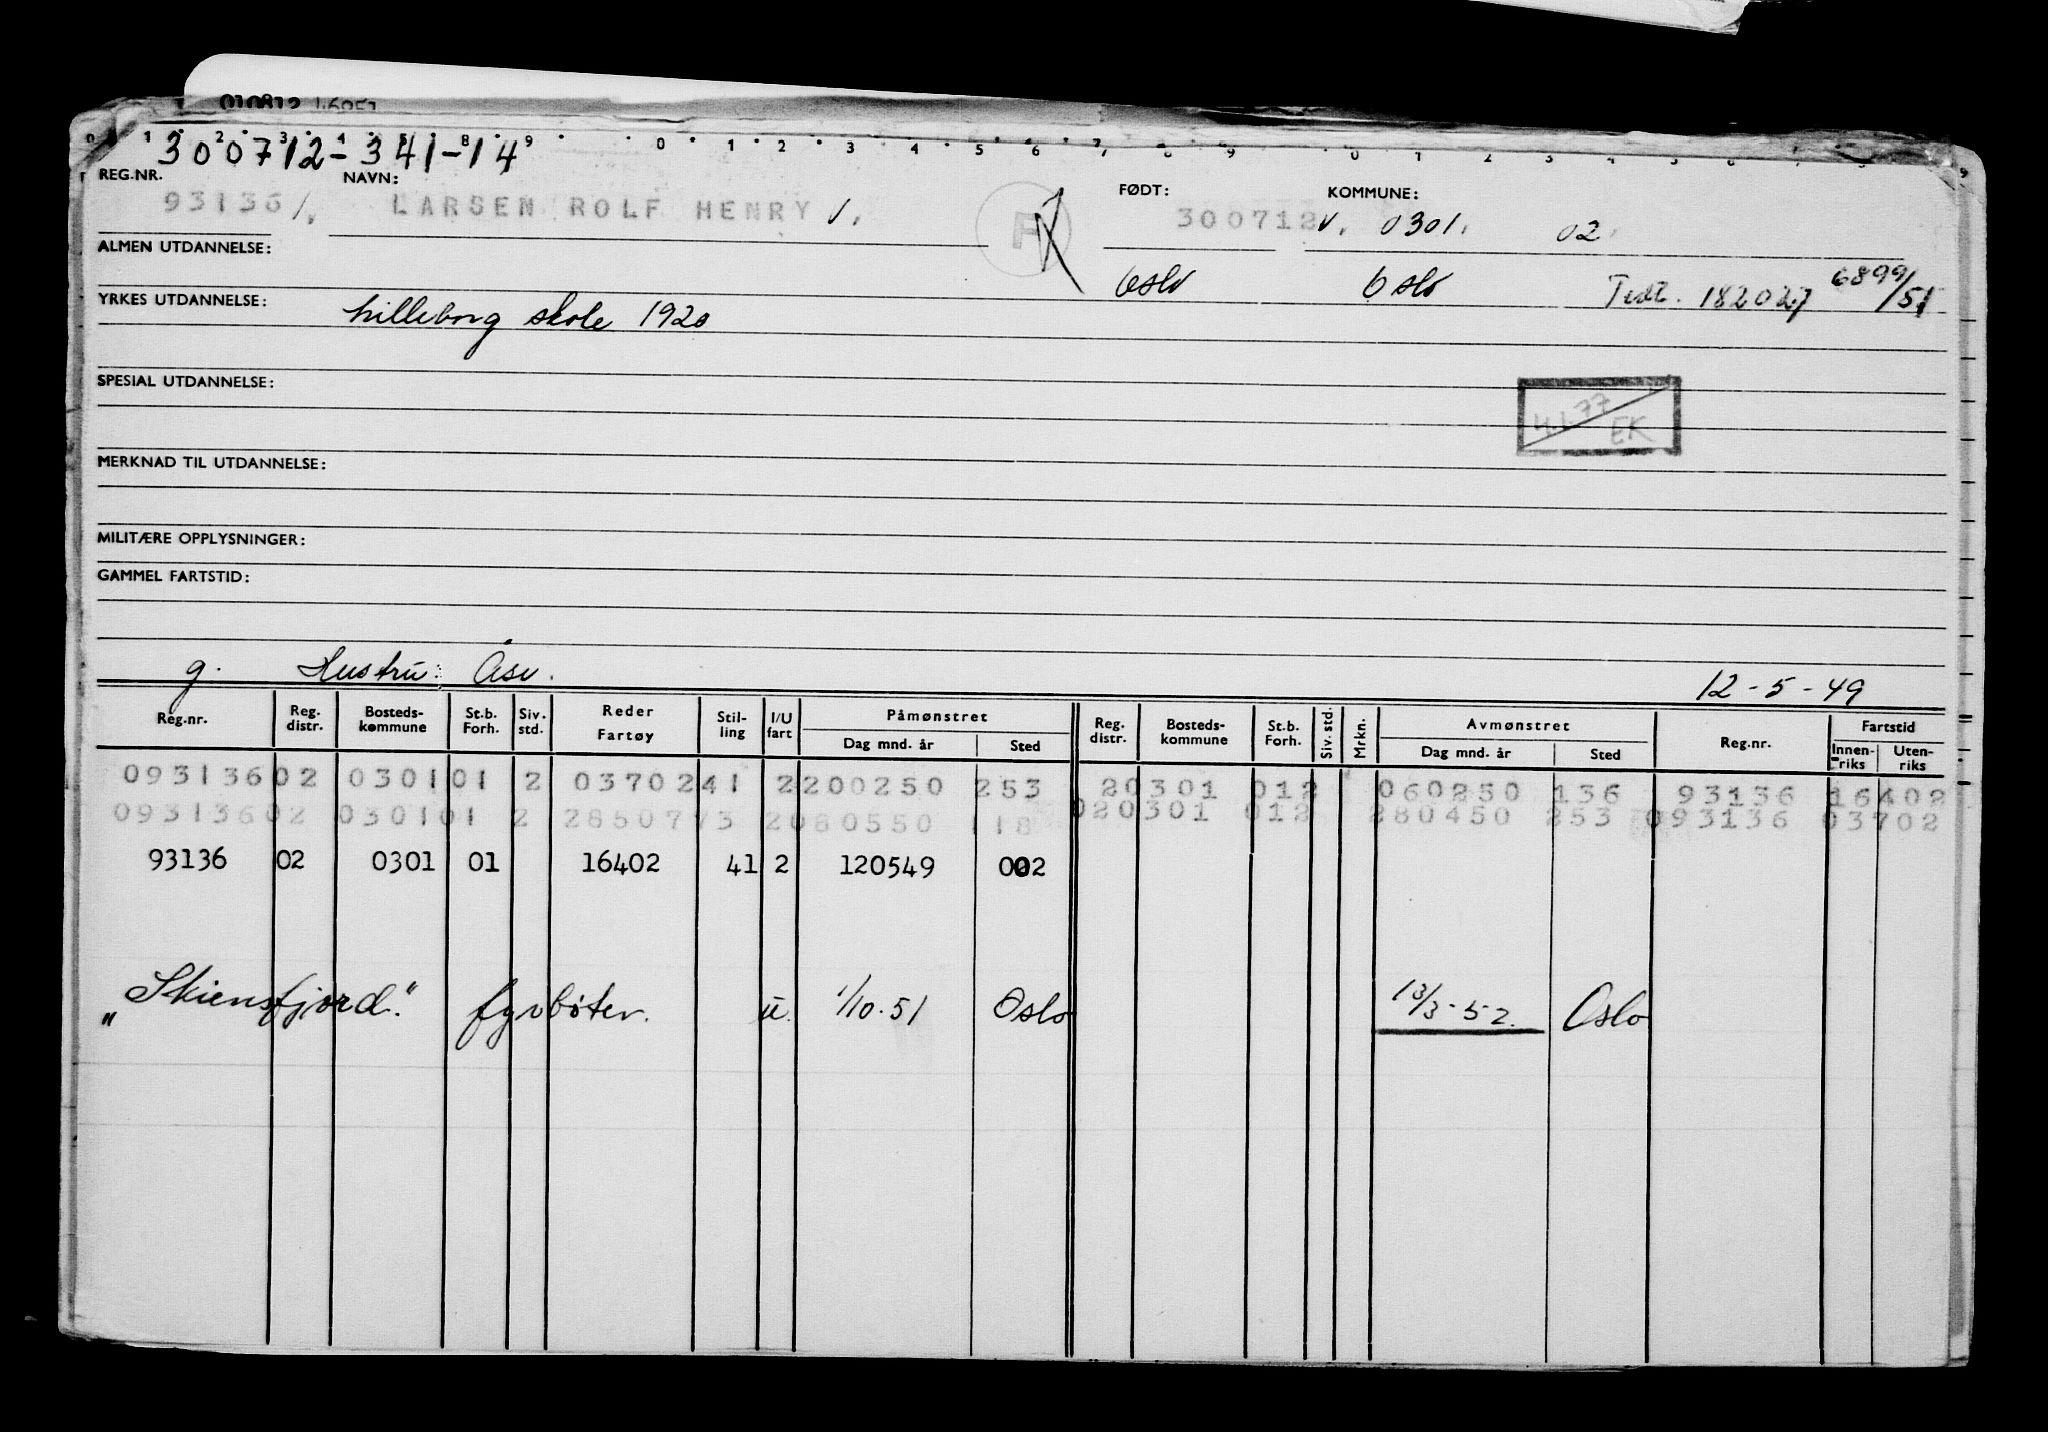 300712-341-14
REG.NR. NAVN: FØDT: KOMMUNE:
93136 LARSEN ROLF HENRY 300712 0301. 02.
ALMEN UTDANNELSE:
Oslo Oslo Tidl. 182027 6899/51
YRKES UTDANNELSE: Lilleborg skole 1920
SPESIAL UTDANNELSE:
4.1.77 EK
MERKNAD TIL UTDANNELSE:
MILITÆRE OPPLYSNINGER:
GAMMEL FARTSTID:
g. Hustru: Åse. 12-5-49
Reg.nr. Reg. distr. Bosteds-kommune St.b. Forh. Siv. std. Reder Fartøy Stil-ling I/U fart Påmønstret Dag mnd. år Sted Reg. distr. Bosteds-kommune St.b. Forh. Siv. std. Mrkn. Avmønstret Dag mnd. år Sted Reg.nr. Fartstid Innen-riks Uten-riks
093136 02 0301 01 2 03702 41 2 200250 253 20301 012 060250 136 93136 16402
093136 02 0301 01 2 28507 73 2 080550 118 020301 012 280450 253 093136 03702
93136 02 0301 01 16402 41 2 120549 002
"Skiensfjord." fyrbøter. u. 1/10.51 Oslo 13/3-52. Oslo